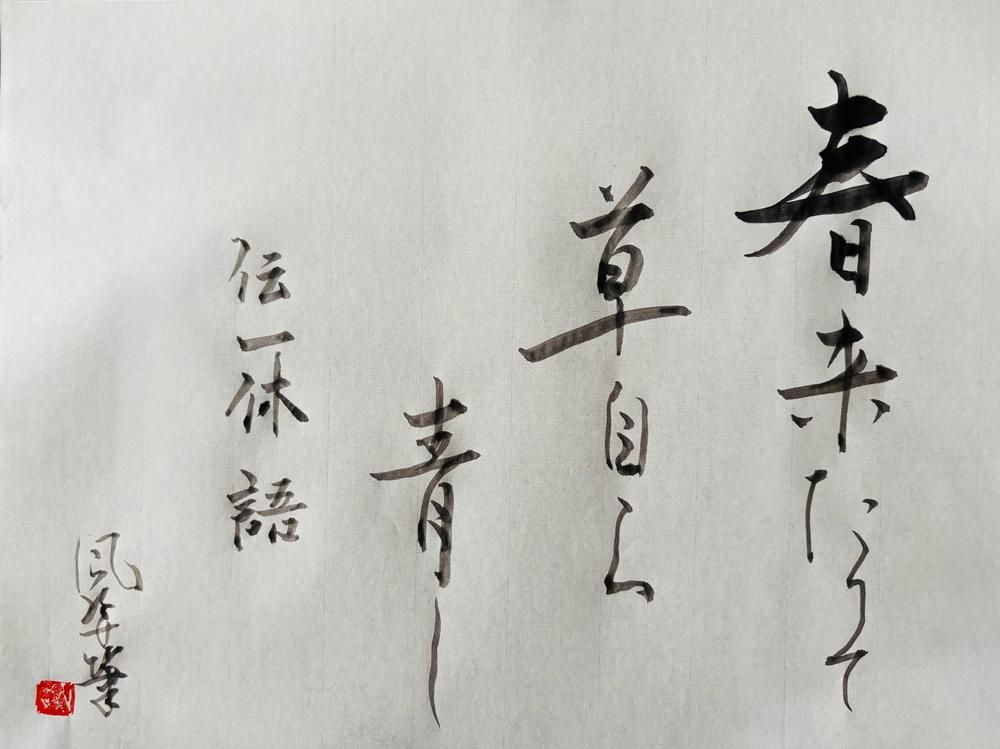 春来たりて
草自ら
青し
伝一休語
風 筆